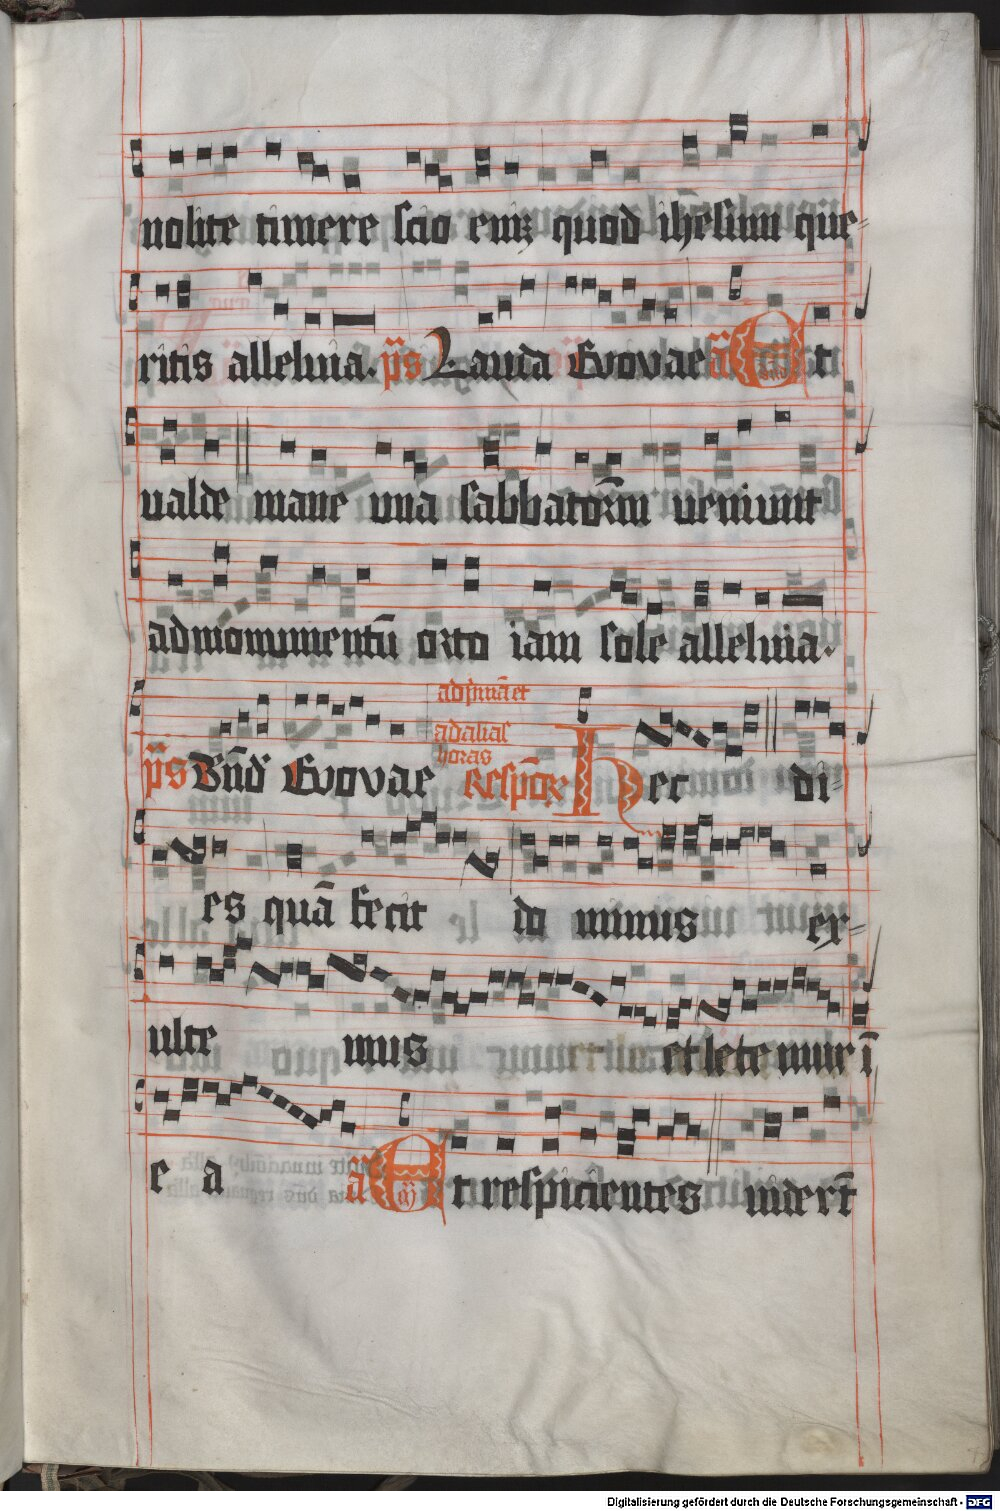 nolite timere scio eniꝫ quod ihesum que⸗
ritis alleluia. p̄s Lauda Evovae a Et
valde mane vna sabbatoꝝm veniunt
admonumentū orto iam sole alleluia.
ad primā et
ad alias
horas
p̄s Bn̄d Evovae Respōr Hec di⸗
es quā fecit do minus ex⸗
ulte mus et lete mur ī
e a a Et respicientes viderꝰt
Digitalisierung gefördert durch die Deutsche Forschungsgemeinschaft - DFG